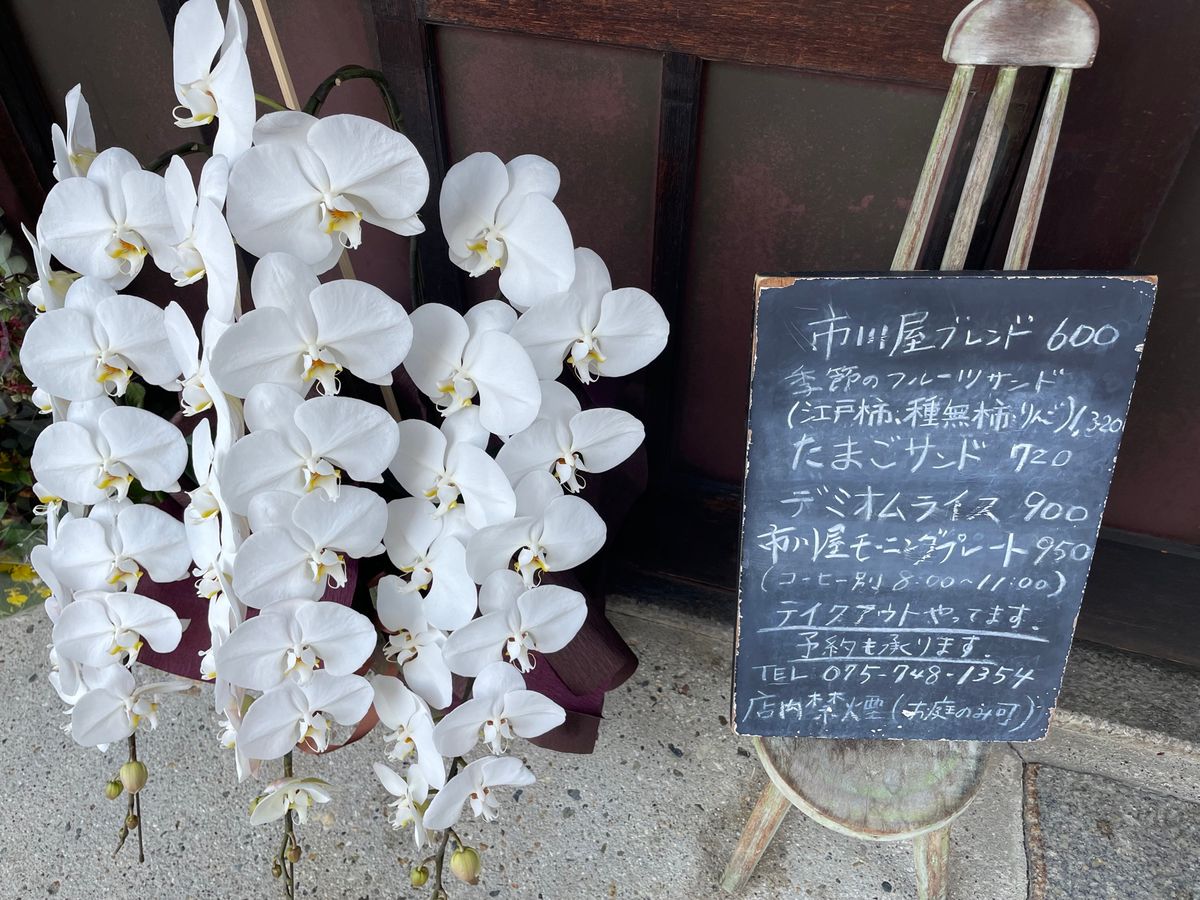 市川屋ブレンド 600
季節のフルーツサンド
(江戸柿、種無柿、りんご)1,320
たまごサンド 720
デミオムライス 900
市川屋モーニングプレート 950
(コーヒー別 8:00~11:00)
テイクアウトやってます。
予約も承ります。
TEL 075-748-1354
店内禁煙(お庭のみ可)